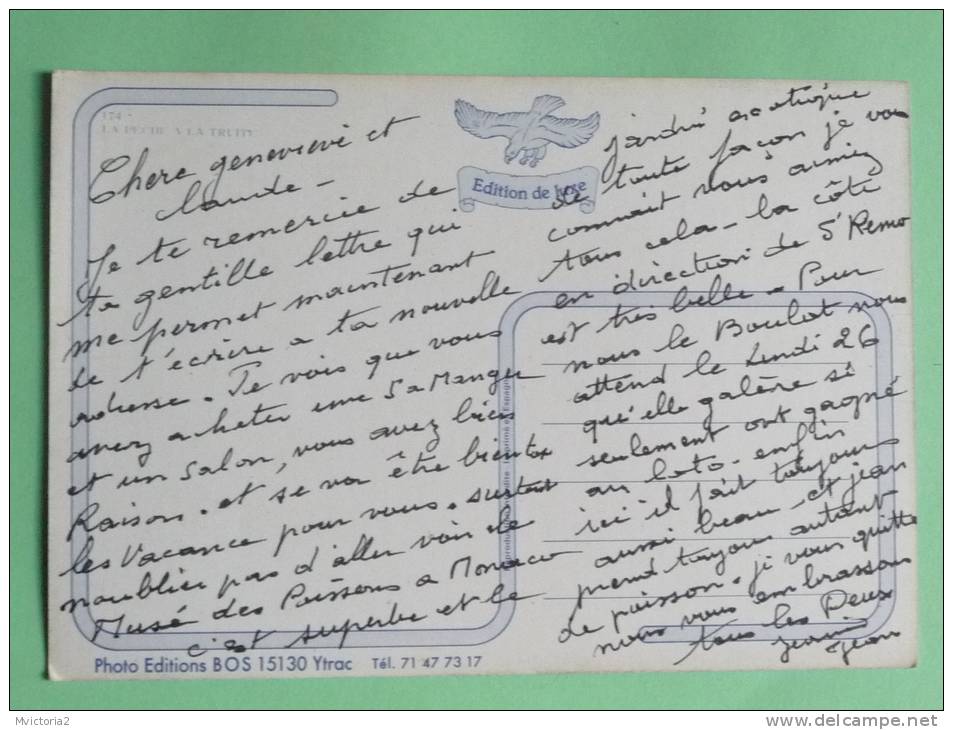 174
LA PECHE A LA TRUITE
Edition de luxe
Chere genevievе et
claude -
Je te remercie de
ta gentille lettre qui
me permet maintenant
de t'écrire a ta nouvelle
adresse. Je vois que vous
avez acheter une Sa Manger
et un Salon, vous avez bien
Raison. et se va être bientox
les Vacance pour vous. surtout
n'oublier pas d'aller voir le
Musé des Poissons a Monaco
c'est superbe et le
jardin exotique
de toute façon je vous
connait vous aimiez
tous cela - la côte
en direction de S' Remo
est très belle - Pour
nous le Boulot nous
attend le Lundi 26
qu'elle galère si
seulement ont gagné
au loto. enfin
ici il fait toujours
aussi beau - et jean
prend toujous autant
de poisson. je vous quitte
nous vous embrassons
tous les Deux
Jean
Photo Editions BOS 15130 Ytrac Tél. 71 47 73 17
Mvictoria2
delcampe.net